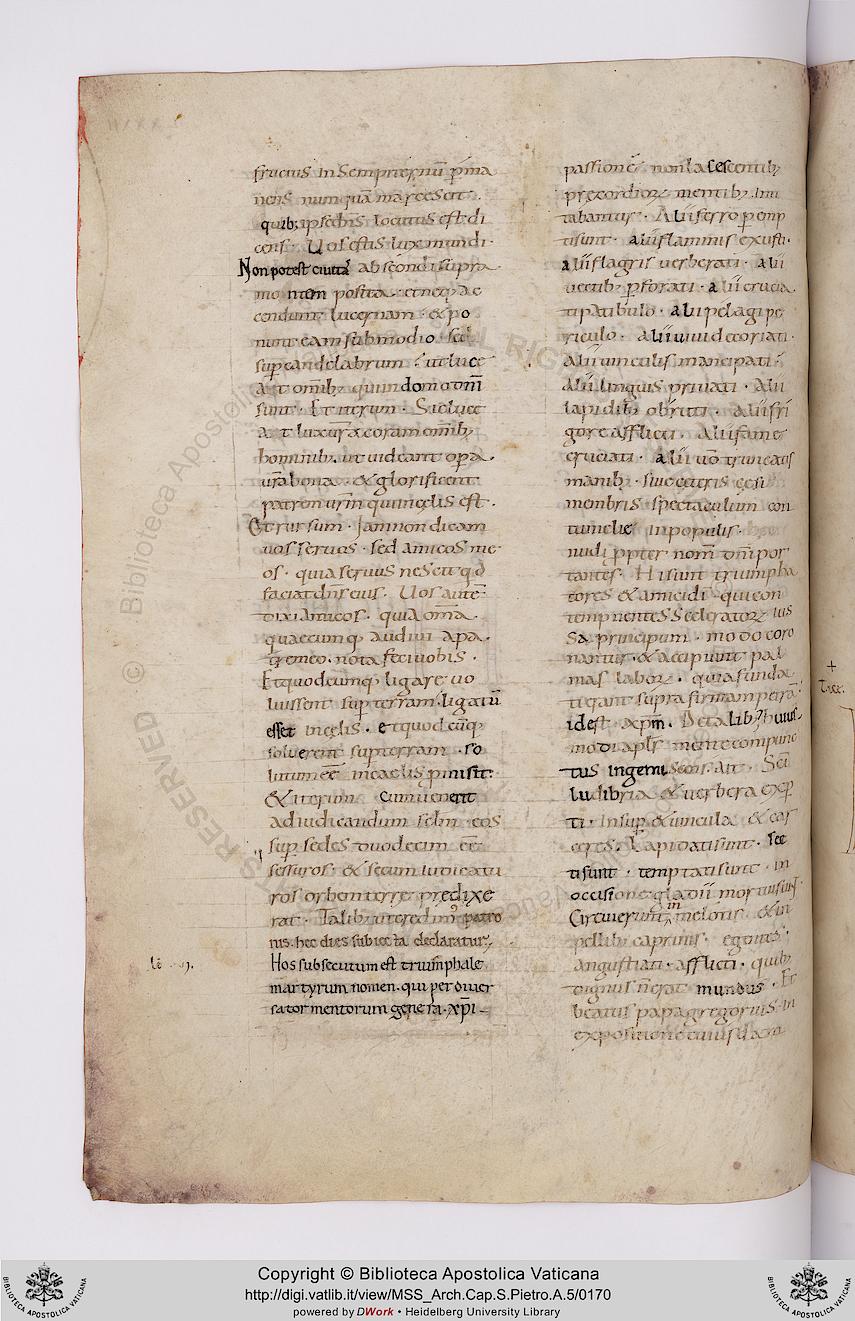 fructus in sempiternū p̄ma
nens numquā marcescit.
quib; ipse dn̄s locutus est di
cens. Vos estis lux mundi.
Non potest ciuitā abscondi supra
montem posita. et neq; ac
cendunt lucernam. & po
nunt eam sub modio. sed
sup candelabrum. ut luce
at omib; qui in domo om̄
sunt. Et iterum. Sic luce
at lux ur̄a coram omīb;
hominib; ut uideant opa
ur̄a bona. & glorificent
patrem ur̄m qui in celis est.
Et rursum. Iam non dicam
uos seruos. sed amicos me
os. quia seruus nescit qd
faciat dn̄s eius. Vos aute
dixi amicos. quia omā
quaecumq; audiui apa
tre meo. nota feci uobis.
Et quodcumq; ligare uo
luissent sup terram. ligatū
esset in celis. et quodcūq;
soluerent sup terram. so
lutum eē in caelis pmisit.
& iterum cum uenerit
ad iudicandum sc̄lm. eos
sup sedes duodecim eē
sessuros. & secum iudicatu
ros orbem terrę prędixe
rat. Talib; ut credim; patro
nis. hec dies subiecta declaratur.
Hos subsecutum est triumphale
martyrum nomen. qui per diuer
sa tormentorum genera. xp̄i
passionē non lasescentib;
precordioꝝ mentib; imi
tabantur. Alii ferro pemp
ti sunt. alii flammis exusti.
alii flagris uerberati. alii
uectib; pforati. alii crucia
ti patibulo. alii pelagi pe
riculo. alii uiui decoriati.
alii uinculis mancipati.
alii linguis priuati. alii
lapidib; obruti. alii fri
gore afflicti. alii fame
cruciati. alii uō truncatis
manib; siue ceteris cęsi
membris spectaculum con
tumelię in populis.
nudi ppter nom̄ dn̄i por
tantes. Hi sunt triumpha
tores & amici dī qui con
tempnentes sceleratoꝝ ius
sa principum. modo coro
nantur. & accipiunt pal
mas laboꝝ. quia funda
ti erant supra firmam petrā
id est xp̄m. De talib; huius
modi apl's mente compunc
tus ingemiscens. ait. Sc̄i
ludibria & uerbera exp
ti. Insup & uincula & car
ceres. Lapidati sunt. sec
ti sunt. temptati sunt. in
occisione gladii mortui sunt.
Circuierunt in melotis. & in
pellib; caprinis. egentes.
angustiati. afflicti. quib;
dignus n̄ erat mundus. Et
beatus papa gregorius. in
expositione